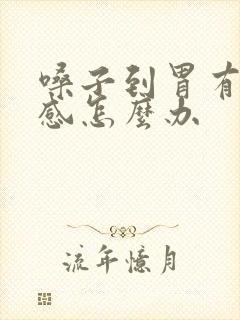 嗓子到胃有
感怎麼办
流年憶月